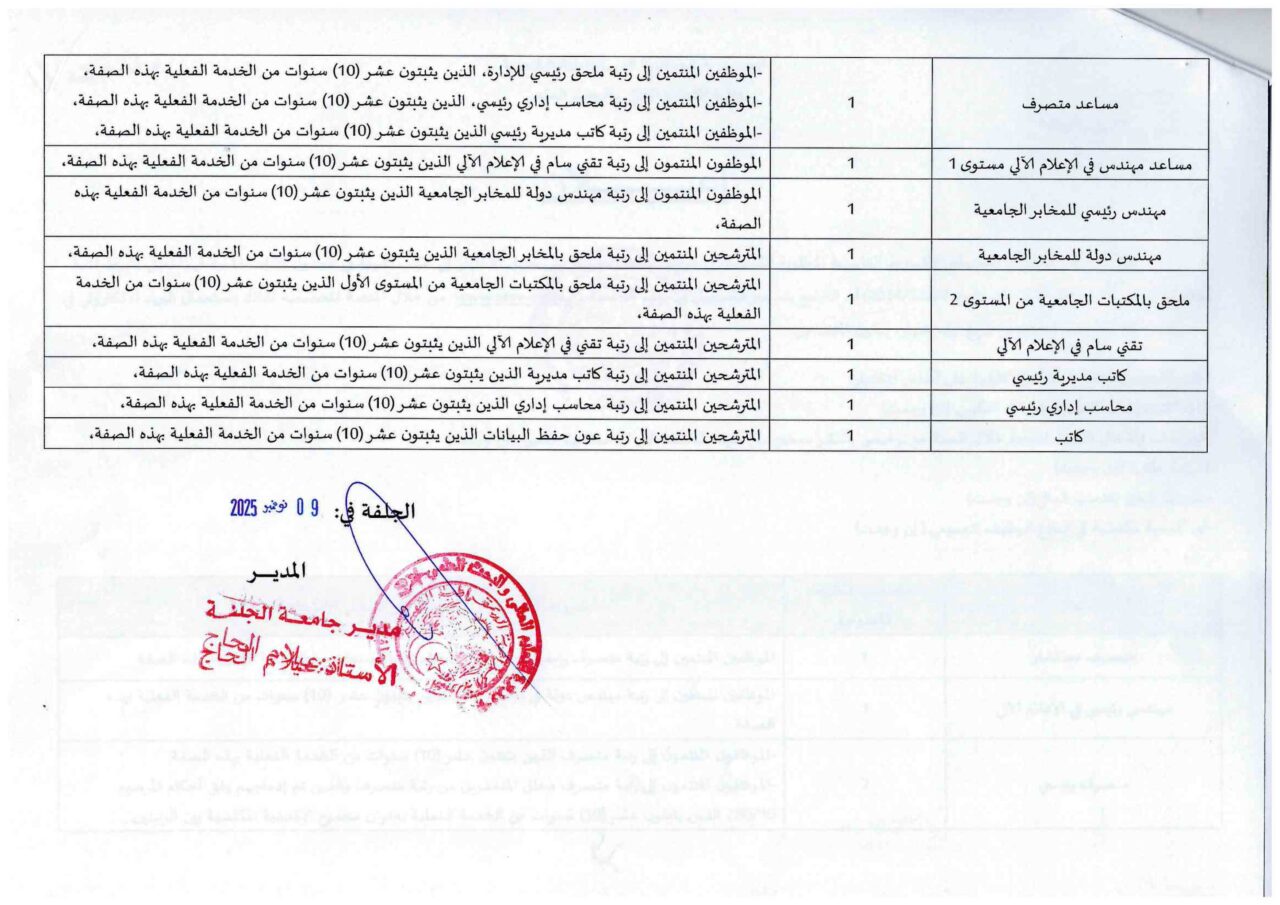 مساعد متصرف
1
-الموظفين المنتمين إلى رتبة ملحق رئيسي للإدارة، الذين يثبتون عشر (10) سنوات من الخدمة الفعلية بهذه الصفة،
-الموظفين المنتمين إلى رتبة محاسب إداري رئيسي، الذين يثبتون عشر (10) سنوات من الخدمة الفعلية بهذه الصفة،
-الموظفين المنتمين إلى رتبة كاتب مديرية رئيسي الذين يثبتون عشر (10) سنوات من الخدمة الفعلية بهذه الصفة،
مساعد مهندس في الإعلام الآلي مستوى 1
1
الموظفون المنتمون إلى رتبة تقني سام في الإعلام الآلي الذين يثبتون عشر (10) سنوات من الخدمة الفعلية بهذه الصفة،
مهندس رئيسي للمخابر الجامعية
1
الموظفون المنتمون إلى رتبة مهندس دولة للمخابر الجامعية الذين يثبتون عشر (10) سنوات من الخدمة الفعلية بهذه
الصفة،
مهندس دولة للمخابر الجامعية
1
المترشحين المنتمين إلى رتبة ملحق بالمخابر الجامعية الذين يثبتون عشر (10) سنوات من الخدمة الفعلية بهذه الصفة،
ملحق بالمكتبات الجامعية من المستوى 2
1
المترشحين المنتمين إلى رتبة ملحق بالمكتبات الجامعية من المستوى الأول الذين يثبتون عشر (10) سنوات من الخدمة
الفعلية بهذه الصفة،
تقني سام في الإعلام الآلي
1
المترشحين المنتمين إلى رتبة تقني في الإعلام الآلي الذين يثبتون عشر (10) سنوات من الخدمة الفعلية بهذه الصفة،
كاتب مديرية رئيسي
1
المترشحين المنتمين إلى رتبة كاتب مديرية الذين يثبتون عشر (10) سنوات من الخدمة الفعلية بهذه الصفة،
محاسب إداري رئيسي
1
المترشحين المنتمين إلى رتبة محاسب إداري الذين يثبتون عشر (10) سنوات من الخدمة الفعلية بهذه الصفة،
كاتب
1
المترشحين المنتمين إلى رتبة عون حفظ البيانات الذين يثبتون عشر (10) سنوات من الخدمة الفعلية بهذه الصفة،
الجلفة في: 09 نوفمبر 2025
المديـر
مدير جامعـة الجلفـة
الأستاذ: عيلام الحاج